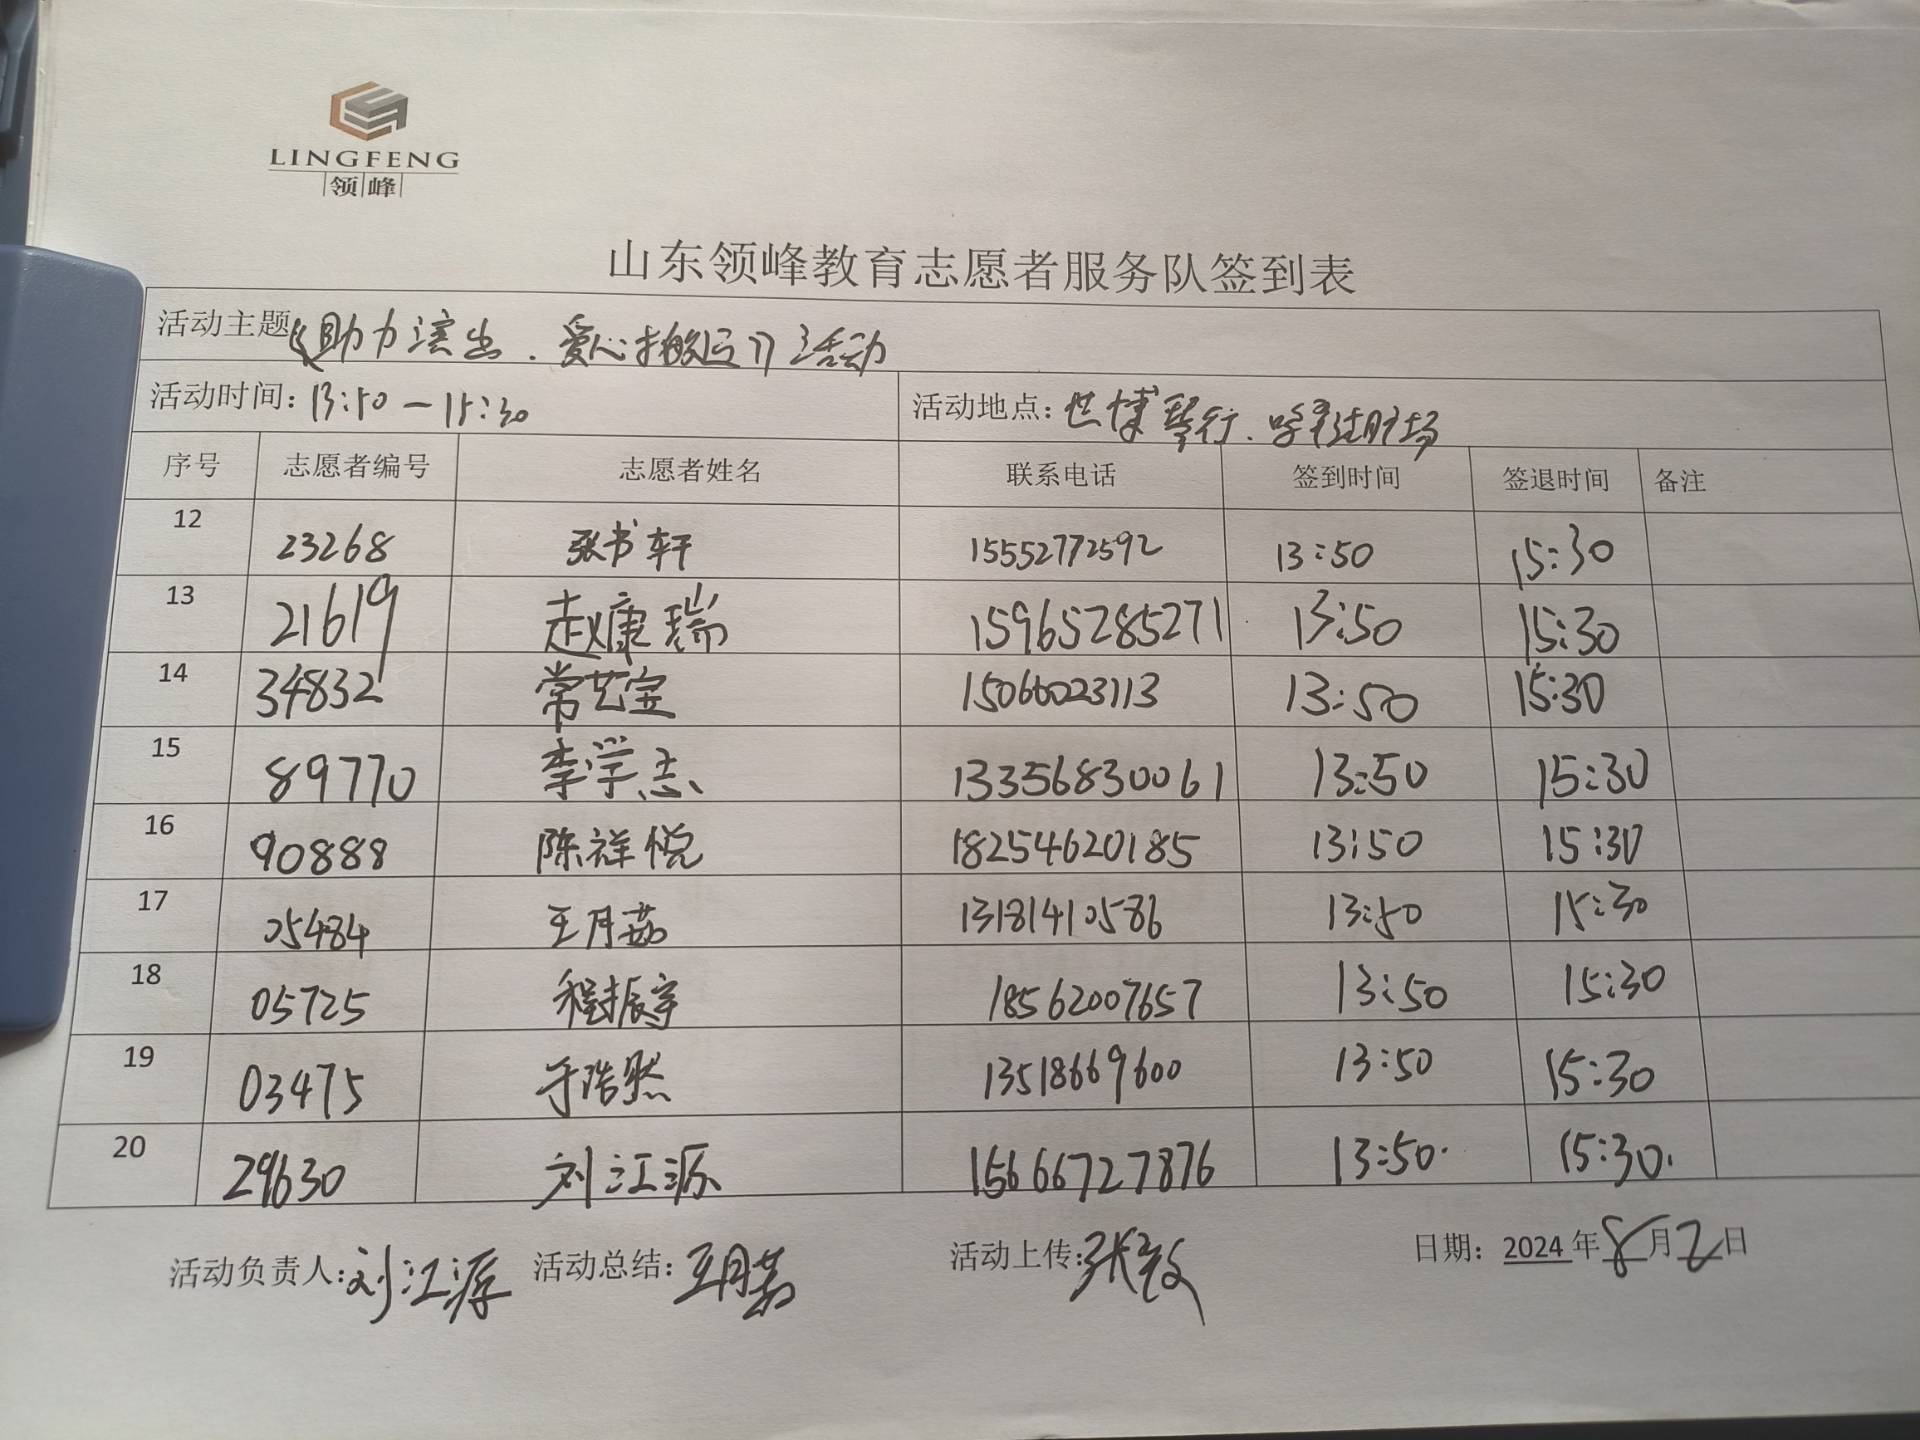 LINGFENG
领峰
山东领峰教育志愿者服务队签到表
活动主题《助力演出.爱心搬运》活动
活动时间：13:50—15:30 活动地点：世博琴行.
序号 志愿者编号 志愿者姓名 联系电话 签到时间 签退时间 备注
12 23268 张书轩 15552772592 13:50 15:30
13 21619 赵康瑞 15965285271 13:50 15:30
14 34832 常艺宝 15066023113 13:50 15:30
15 89770 李学志 13356830061 13:50 15:30
16 90888 陈祥悦 18254620185 13:50 15:30
17 05484 王月茹 13181410586 13:50 15:30
18 05725 程振宇 18562007657 13:50 15:30
19 03475 于浩然 13518669600 13:50 15:30
20 29630 刘江源 15666727876 13:50. 15:30.
活动负责人：刘江源 活动总结：王月茹 活动上传：张 日期：2024年8月2日